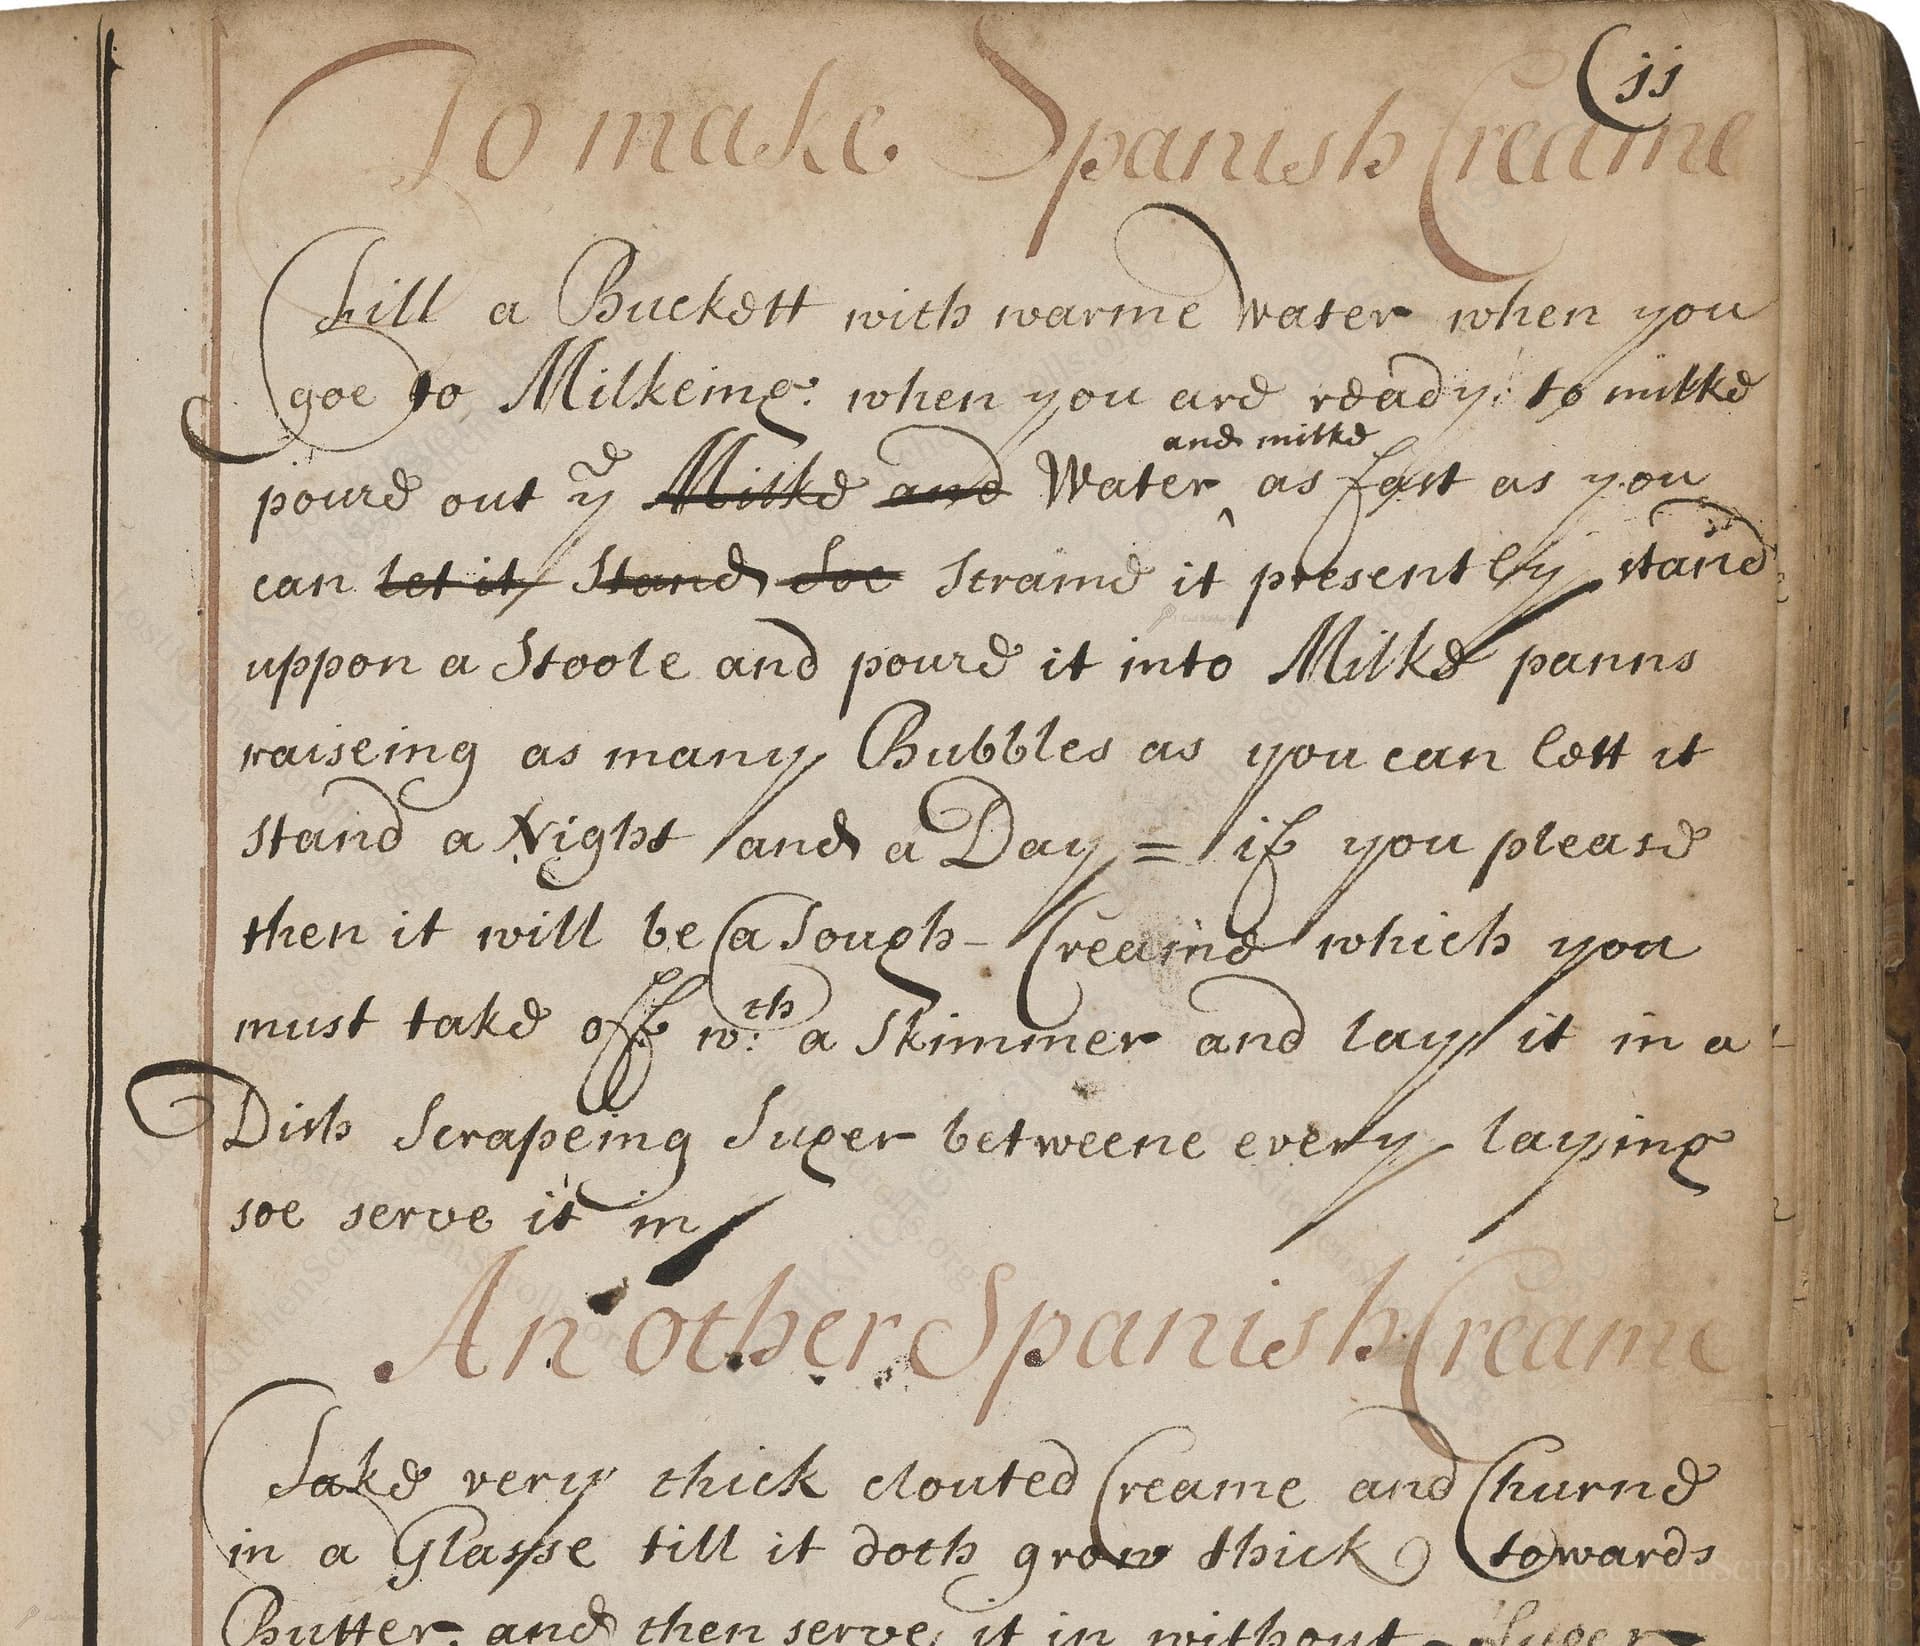 (11
To make Spanish Creame
Fill a Buckett with warme Water when you
goe to Milkeing: when you are ready to milke
and milke
poure out yͤ Milke and Water ‸ as fast as you
can let it Stand Soe Straine it presently stand
uppon a Stoole and poure it into Milke panns
raiseing as many Bubbles as you can lett it
stand a Night and a Day = if you please
then it will be a Tough - Creame which you
must take off wᵗʰ: a Skimmer and lay it in a
Dish Scrapeing Suger betweene every laying
soe serve it in
Another Spanish Creame
Take very thick clouted Creame and Churne
in a Glasse till it doth grow thick towards
Butter, and then serve it in without Suger